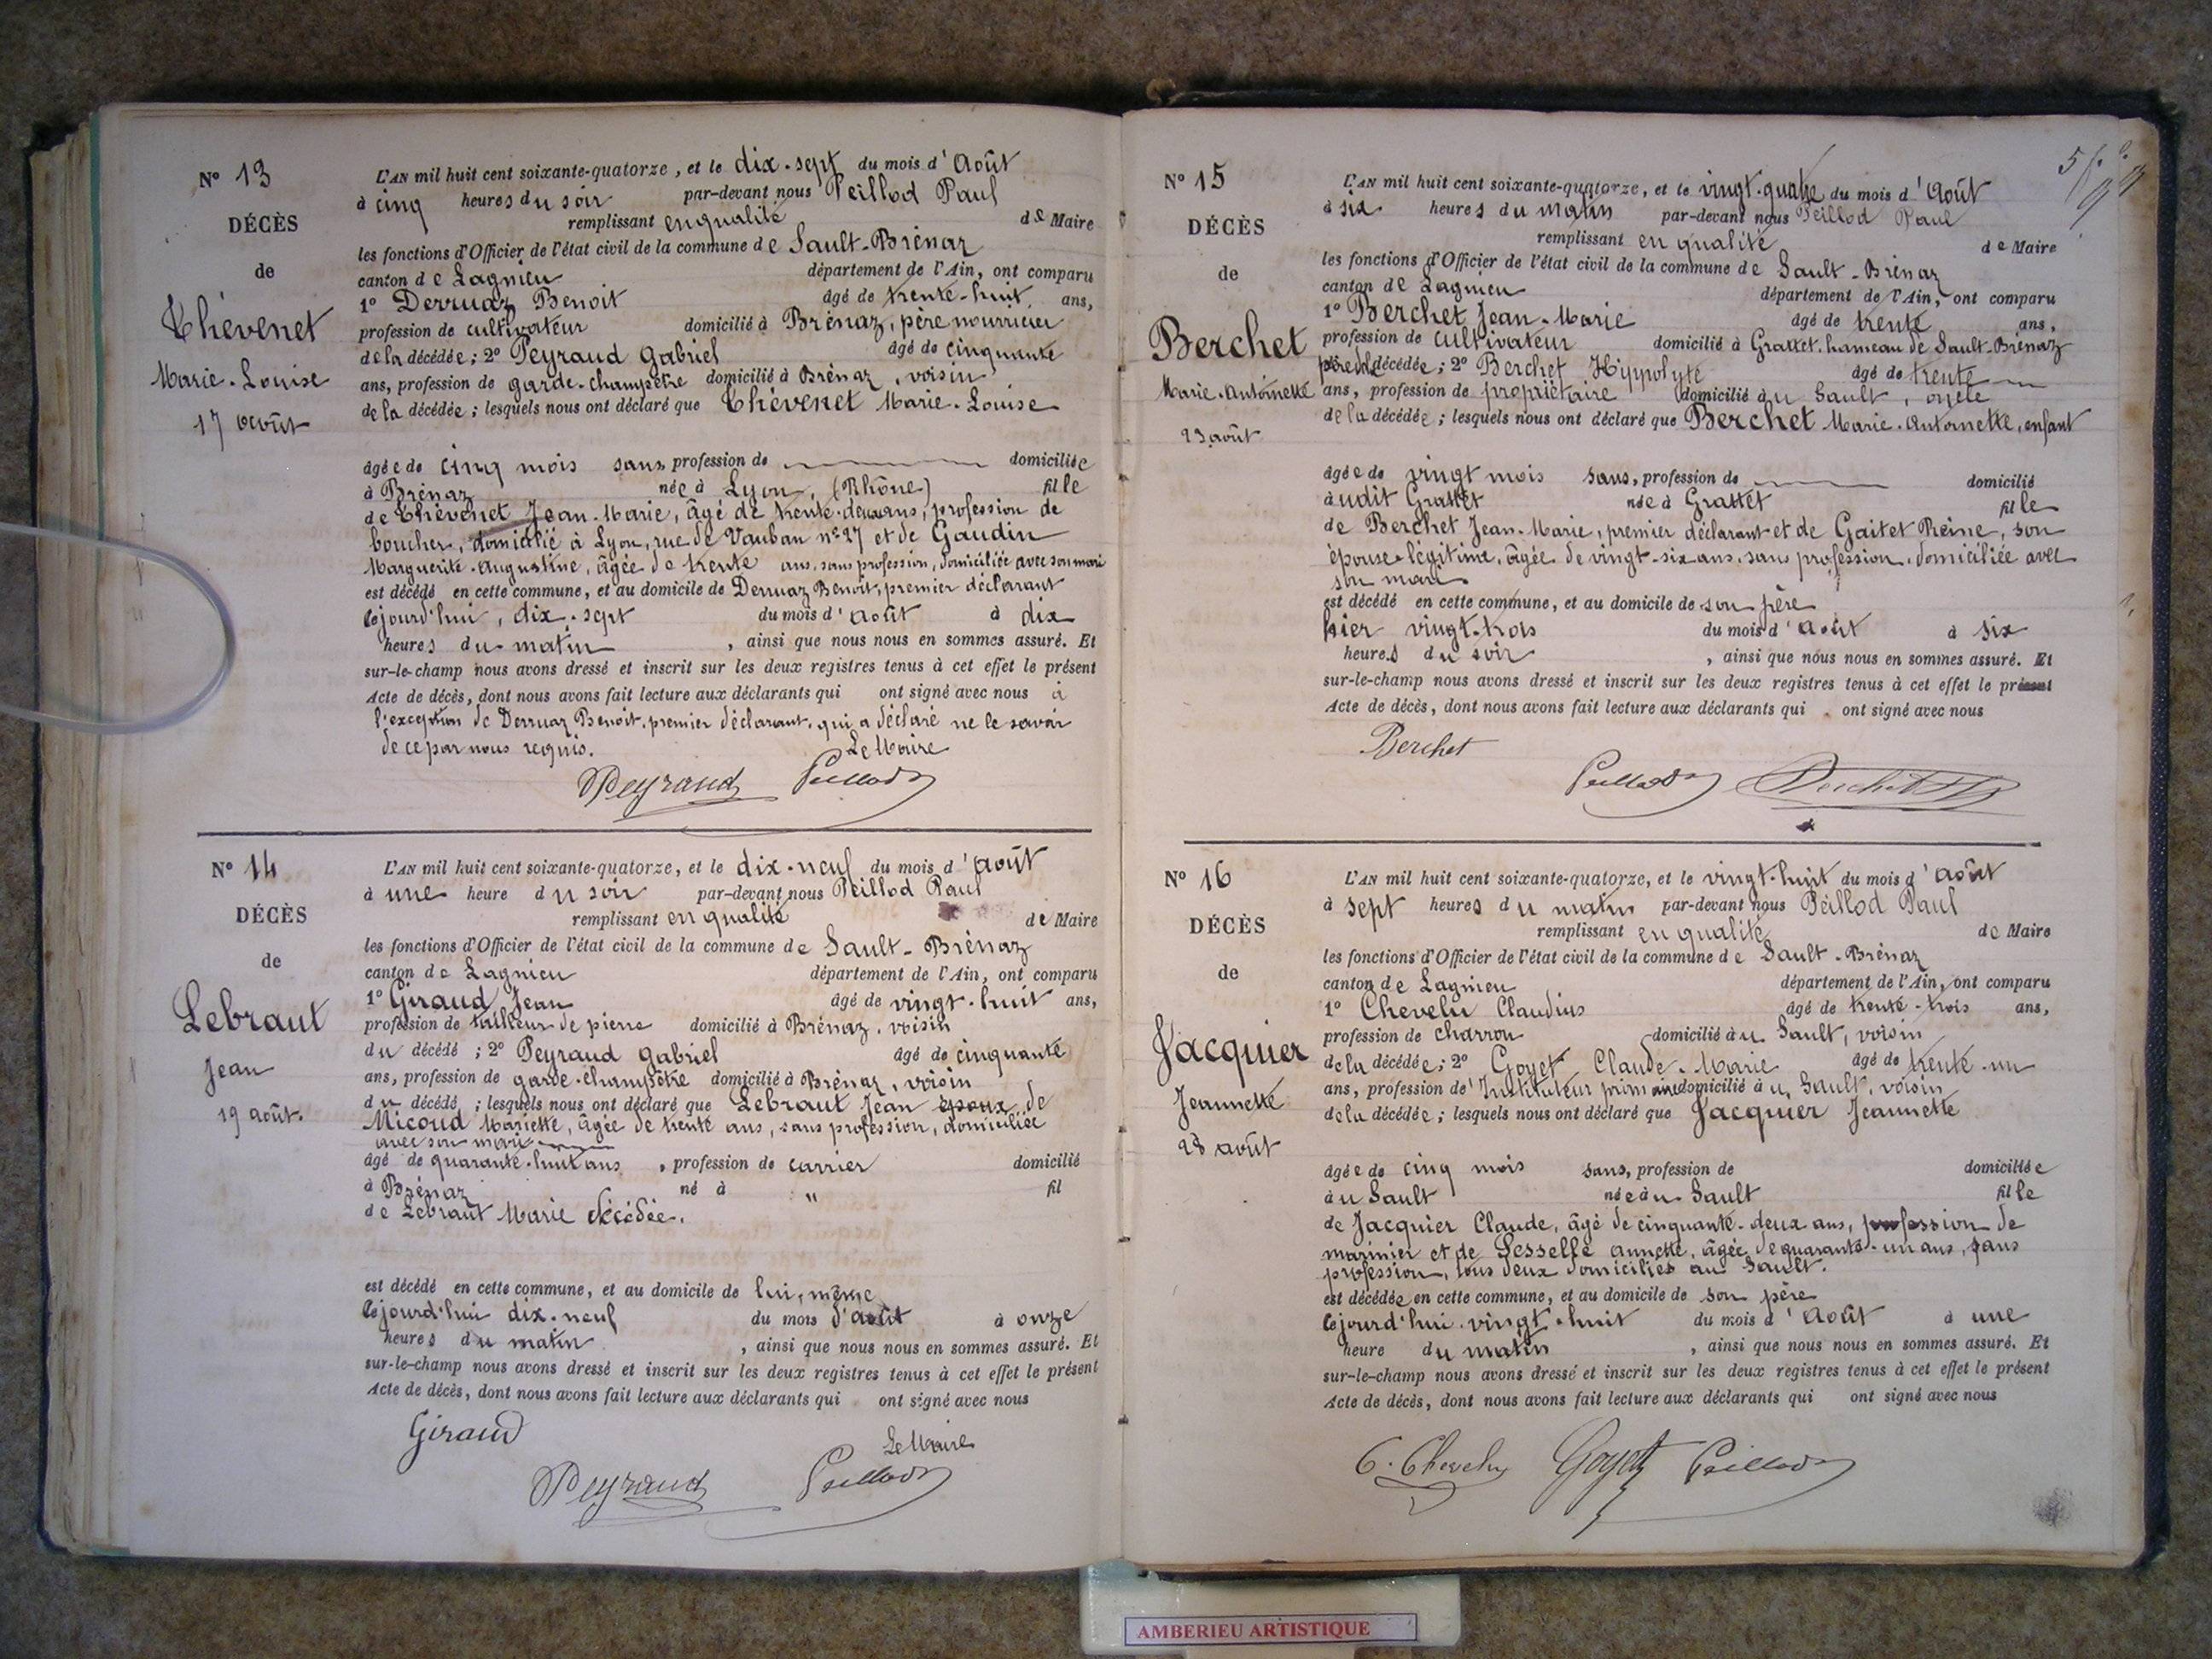 N° 13
DÉCÈS
de
Thévenet
Marie-Louise
17 août
L'AN mil huit cent soixante-quatorze, et le dix-sept du mois d'Août
à cinq heures du soir par-devant nous Peillod Paul
remplissant en qualité de Maire
les fonctions d'Officier de l'état civil de la commune de Sault-Brénaz
canton de Lagnieu département de l'Ain, ont comparu
1° Derruaz Benoit âgé de trente-huit ans,
profession de cultivateur domicilié à Brénaz, père nourricier
de la décédée; 2° Peyraud Gabriel âgé de cinquante
ans, profession de garde-champêtre domicilié à Brénaz, voisin
de la décédée; lesquels nous ont déclaré que Thévenet Marie-Louise
âgée de cinq mois sans profession de domiciliée
à Brénaz née à Lyon, (Rhône) fille
de Thévenet Jean-Marie, âgé de trente-deux ans, profession de
boucher, domicilié à Lyon, rue de Vauban n° 27 et de Gaudin
Marguerite-Augustine, âgée de trente ans, sans profession, domiciliée avec son mari
est décédé en cette commune, et au domicile de Derruaz Benoit, premier déclarant
cejourd'hui, dix-sept du mois d'août à dix
heures du matin, ainsi que nous nous en sommes assuré. Et
sur-le-champ nous avons dressé et inscrit sur les deux registres tenus à cet effet le présent
Acte de décès, dont nous avons fait lecture aux déclarants qui ont signé avec nous à
l'exception de Derruaz Benoit, premier déclarant, qui a déclaré ne le savoir
de ce par nous requis.
Le Maire
Peyraud Peillod
N° 14
DÉCÈS
de
Lebraut
Jean
19 août.
L'AN mil huit cent soixante-quatorze, et le dix-neuf du mois d'août
à une heure du soir par-devant nous Peillod Paul
remplissant en qualité de Maire
les fonctions d'Officier de l'état civil de la commune de Sault-Brénaz
canton de Lagnieu département de l'Ain, ont comparu
1° Giraud Jean âgé de vingt-huit ans,
profession de tailleur de pierre domicilié à Brénaz, voisin
du décédé; 2° Peyraud Gabriel âgé de cinquante
ans, profession de garde-champêtre domicilié à Brénaz, voisin
du décédé; lesquels nous ont déclaré que Lebraut Jean époux de
Micoud Mariette, âgée de trente ans, sans profession, domiciliée
avec son mari
âgé de quarante-huit ans, profession de carrier domicilié
à Brénaz né à " fil
de Lebraut Marie décédée.
est décédé en cette commune, et au domicile de lui-même
cejourd'hui dix-neuf du mois d'août à onze
heures du matin, ainsi que nous nous en sommes assuré. Et
sur-le-champ nous avons dressé et inscrit sur les deux registres tenus à cet effet le présent
Acte de décès, dont nous avons fait lecture aux déclarants qui ont signé avec nous
Giraud
Le Maire
Peyraud Peillod
N° 15
DÉCÈS
de
Berchet
Marie-Antoinette
23 août
L'AN mil huit cent soixante-quatorze, et le vingt-quatre du mois d'Août
à six heures du matin par-devant nous Peillod Paul
remplissant en qualité de Maire
les fonctions d'Officier de l'état civil de la commune de Sault-Brénaz
canton de Lagnieu département de l'Ain, ont comparu
1° Berchet Jean-Marie âgé de trente ans,
profession de cultivateur domicilié à Grattet, hameau de Sault-Brénaz
père de la décédée; 2° Berchet Hippolyte âgé de trente
ans, profession de propriétaire domicilié au Sault, oncle
de la décédée; lesquels nous ont déclaré que Berchet Marie-Antoinette, enfant
âgée de vingt mois sans, profession de domicilié
audit Grattet née à Grattet fille
de Berchet Jean-Marie, premier déclarant et de Gaitet Reine, son
épouse légitime, âgée de vingt-six ans, sans profession, domiciliée avec
son mari
est décédé en cette commune, et au domicile de son père
hier vingt-trois du mois d'août à six
heures du soir, ainsi que nous nous en sommes assuré. Et
sur-le-champ nous avons dressé et inscrit sur les deux registres tenus à cet effet le présent
Acte de décès, dont nous avons fait lecture aux déclarants qui ont signé avec nous
Berchet
Peillod Berchet
N° 16
DÉCÈS
de
Jacquier
Jeannette
28 août
L'AN mil huit cent soixante-quatorze, et le vingt-huit du mois d'août
à sept heures du matin par-devant nous Peillod Paul
remplissant en qualité de Maire
les fonctions d'Officier de l'état civil de la commune de Sault-Brénaz
canton de Lagnieu département de l'Ain, ont comparu
1° Chevelu Claudius âgé de trente-trois ans,
profession de charron domicilié au Sault, voisin
de la décédée; 2° Goyet Claude-Marie âgé de trente-un
ans, profession d'Instituteur primaire domicilié au Sault, voisin
de la décédée; lesquels nous ont déclaré que Jacquier Jeannette
âgée de cinq mois sans, profession de domiciliée
au Sault née au Sault fille
de Jacquier Claude, âgé de cinquante-deux ans, profession de
marinier et de annette, âgée de quarante-un ans, sans
profession, tous deux domiciliés au Sault.
est décédée en cette commune, et au domicile de son père
cejourd'hui vingt-huit du mois d'Août à une
heure du matin, ainsi que nous nous en sommes assuré. Et
sur-le-champ nous avons dressé et inscrit sur les deux registres tenus à cet effet le présent
Acte de décès, dont nous avons fait lecture aux déclarants qui ont signé avec nous
C. Chevelu Goyet Peillod
AMBERIEU ARTISTIQUE